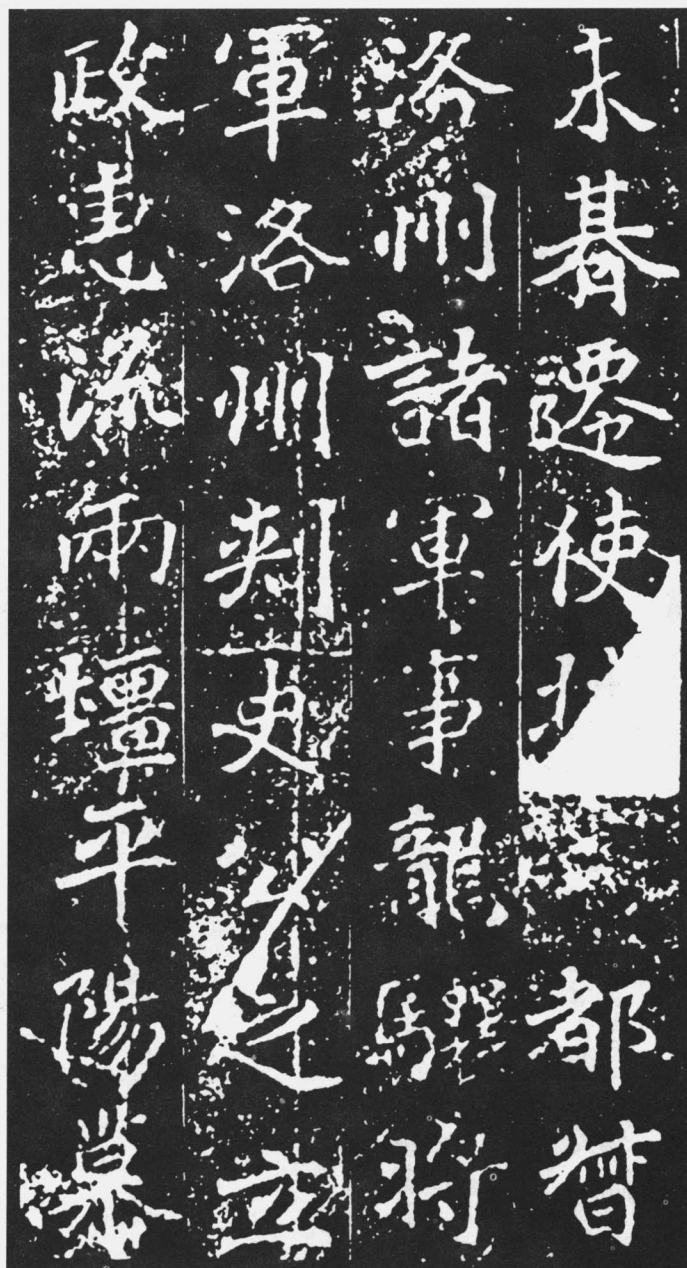 未朞遷使持都督
洛州諸軍事龍驤將
軍洛州刺史公之立
政惠流兩壃平陽慕